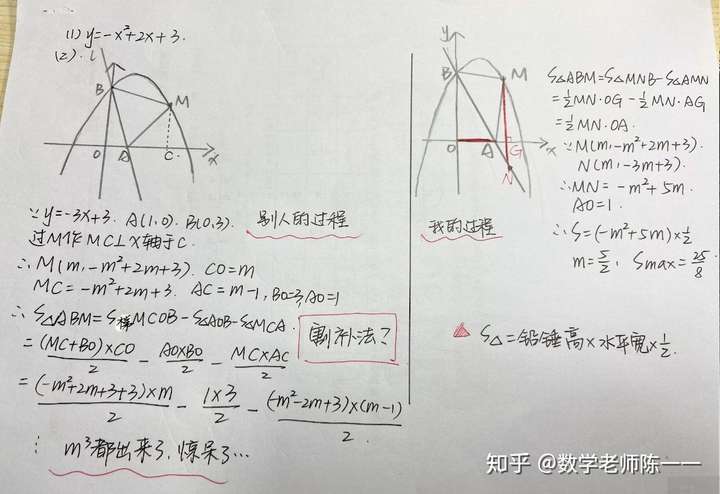 (1) y=-x²+2x+3.
(2).
B
M
O
A
C
x
∵ y=-3x+3. A(1,0). B(0,3).
别人的过程
过M作MC⊥X轴于C.
∴ M(m,-m²+2m+3). CO=m
MC=-m²+2m+3. AC=m-1, BO=3, AO=1
∴ S△ABM=S梯MCOB-S△AOB-S△MCA.
= (MC+BO)×CO/2 - AO×BO/2 - MC×AC/2
= (-m²+2m+3+3)×m/2 - 1×3/2 - (-m²-2m+3)×(m-1)/2.
⋮ m³都出来了, 惊呆了…
割补法?
y
B
M
O
A
G
x
N
我的过程
S△ABM=S△MNB-S△AMN
=½MN·OG-½MN·AG
=½MN·OA.
∵M(m,-m²+2m+3).
N(m,-3m+3).
∴MN=-m²+5m.
AO=1.
∴S=(-m²+5m)×½
m=5/2, Smax=25/8
S△=铅锤高×水平宽×½.
知乎 @数学老师陈一一